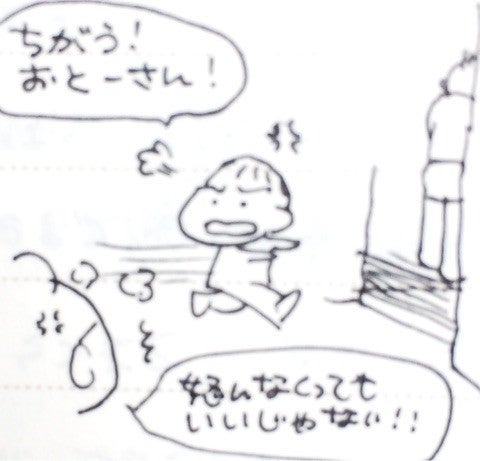 ちがう!
おとーさん!
怒んなくっても
いいじゃない!!